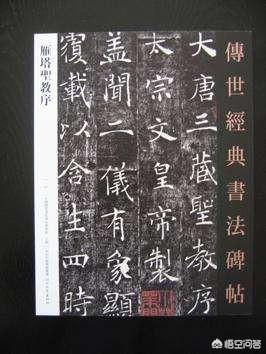 傳世經典書法碑帖
大唐三藏聖教序
太宗文皇帝製
盖聞二儀有象顯
覆載以含生四時
雁塔聖教序
悟空问答